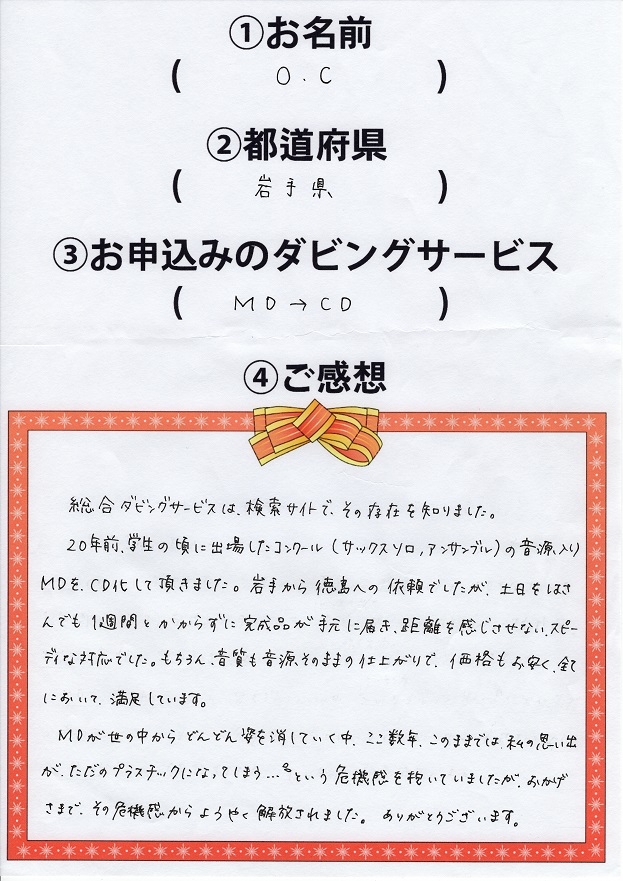 ①お名前
( O.C )
②都道府県
( 岩手県 )
③お申込みのダビングサービス
( MD→CD )
④ご感想
総合ダビングサービスは、検索サイトで、その存在を知りました。
20年前、学生の頃に出場したコンクール(サックスソロ,アンサンブル)の音源入り
MDを、CD化して頂きました。岩手から徳島への依頼でしたが、土日をはさ
んでも1週間とかからずに完成品が手元に届き、距離を感じさせないスピー
ディな対応でした。もちろん、音質も音源そのままの仕上がりで、価格もお安く、全て
において、満足しています。
MDが世の中からどんどん姿を消していく中、ここ数年、このままでは、私の思い出
が、ただのプラスチックになってしまう…。という危機感を抱いていましたが、おかげ
さまで、その危機感からようやく解放されました。ありがとうございます。